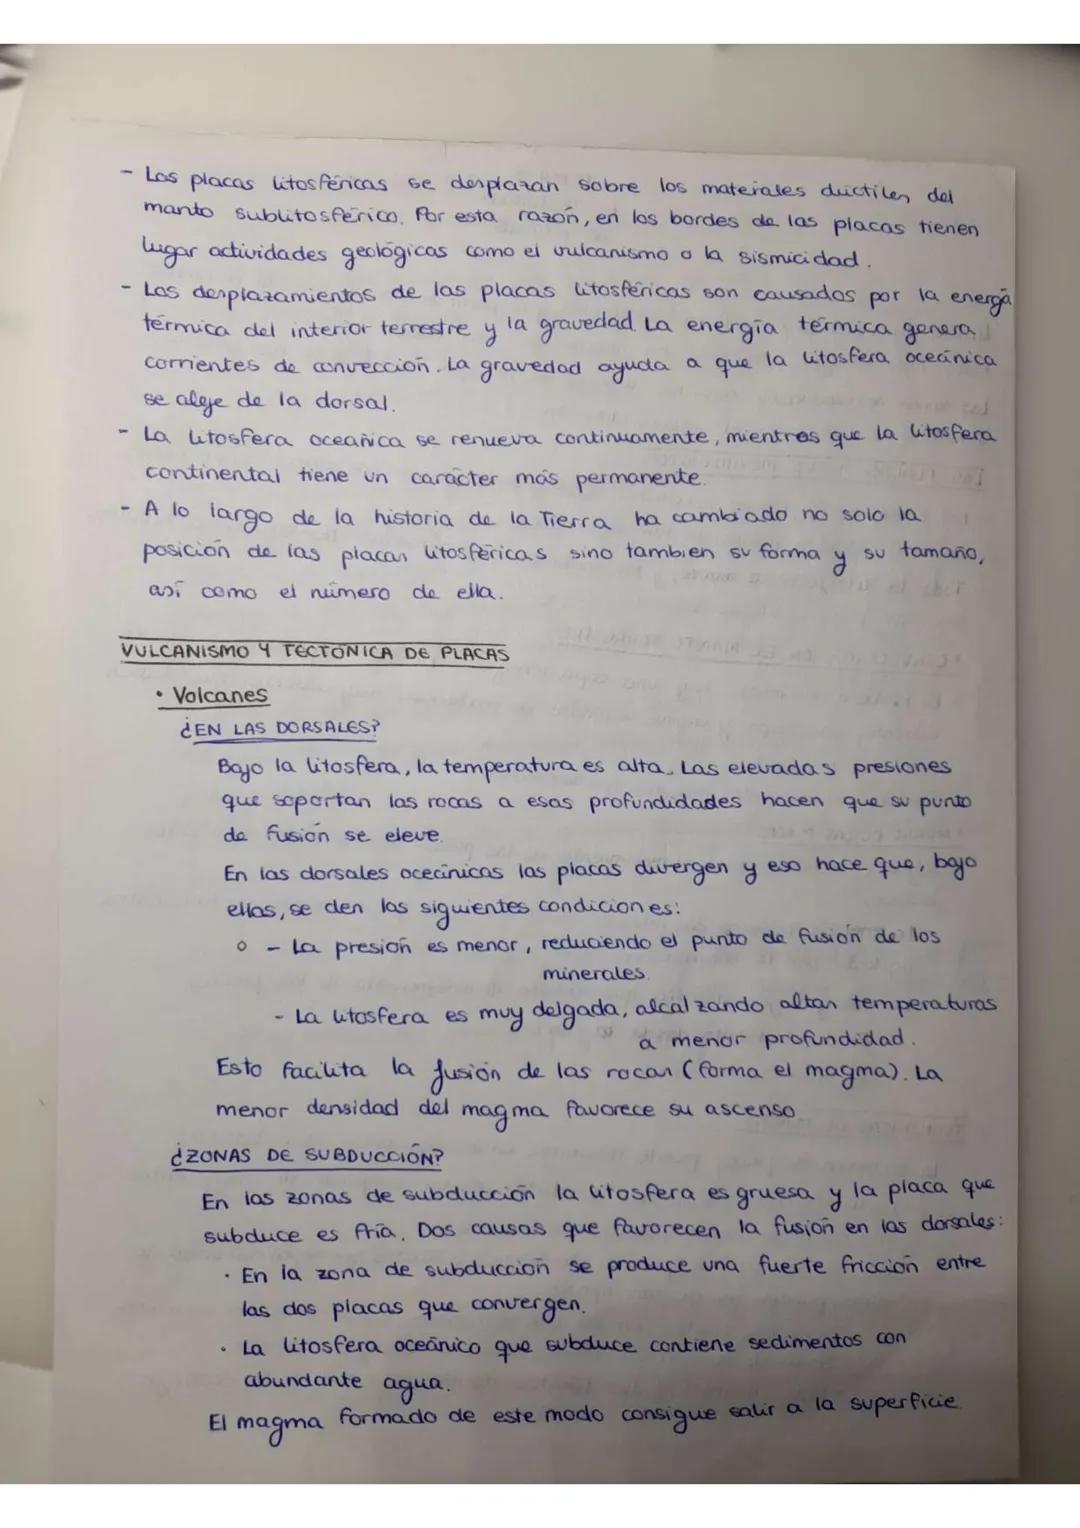 - Las placas litosféricas se desplazan sobre los materiales dúctiles del
manto sublitosférico. Por esta razón, en los bordes de las placas tienen
lugar actividades geológicas como el vulcanismo o la sismicidad.
- Los desplazamientos de las placas litosféricas son causados por la energía
térmica del interior terrestre y la gravedad. La energía térmica genera
corrientes de convección. La gravedad ayuda a que la litosfera oceánica
se aleje de la dorsal.
- La litosfera oceánica se renueva continuamente, mientras que la litosfera
continental tiene un carácter más permanente.
- A lo largo de la historia de la Tierra ha cambiado no solo la
posición de las placas litosféricas sino tambien su forma y su tamaño,
así como el número de ella.
VULCANISMO Y TECTÓNICA DE PLACAS
• Volcanes
¿EN LAS DORSALES?
Bajo la litosfera, la temperatura es alta. Las elevadas presiones
que soportan las rocas a esas profundidades hacen que su punto
de fusión se eleve.
En las dorsales oceánicas las placas divergen y eso hace que, bajo
ellas, se den las siguientes condiciones:
o - La presión es menor, reduciendo el punto de fusión de los
minerales.
- La litosfera es muy delgada, alcalzando altas temperaturas
a menor profundidad.
Esto facilita la fusión de las rocas (forma el magma). La
menor densidad del magma favorece su ascenso
¿ZONAS DE SUBDUCCIÓN?
En las zonas de subducción la litosfera es gruesa y la placa que
subduce es fría. Dos causas que favorecen la fusión en las dorsales:
• En la zona de subducción se produce una fuerte fricción entre
las dos placas que convergen.
• La litosfera oceánico que subduce contiene sedimentos con
abundante agua.
El magma formado de este modo consigue salir a la superficie.